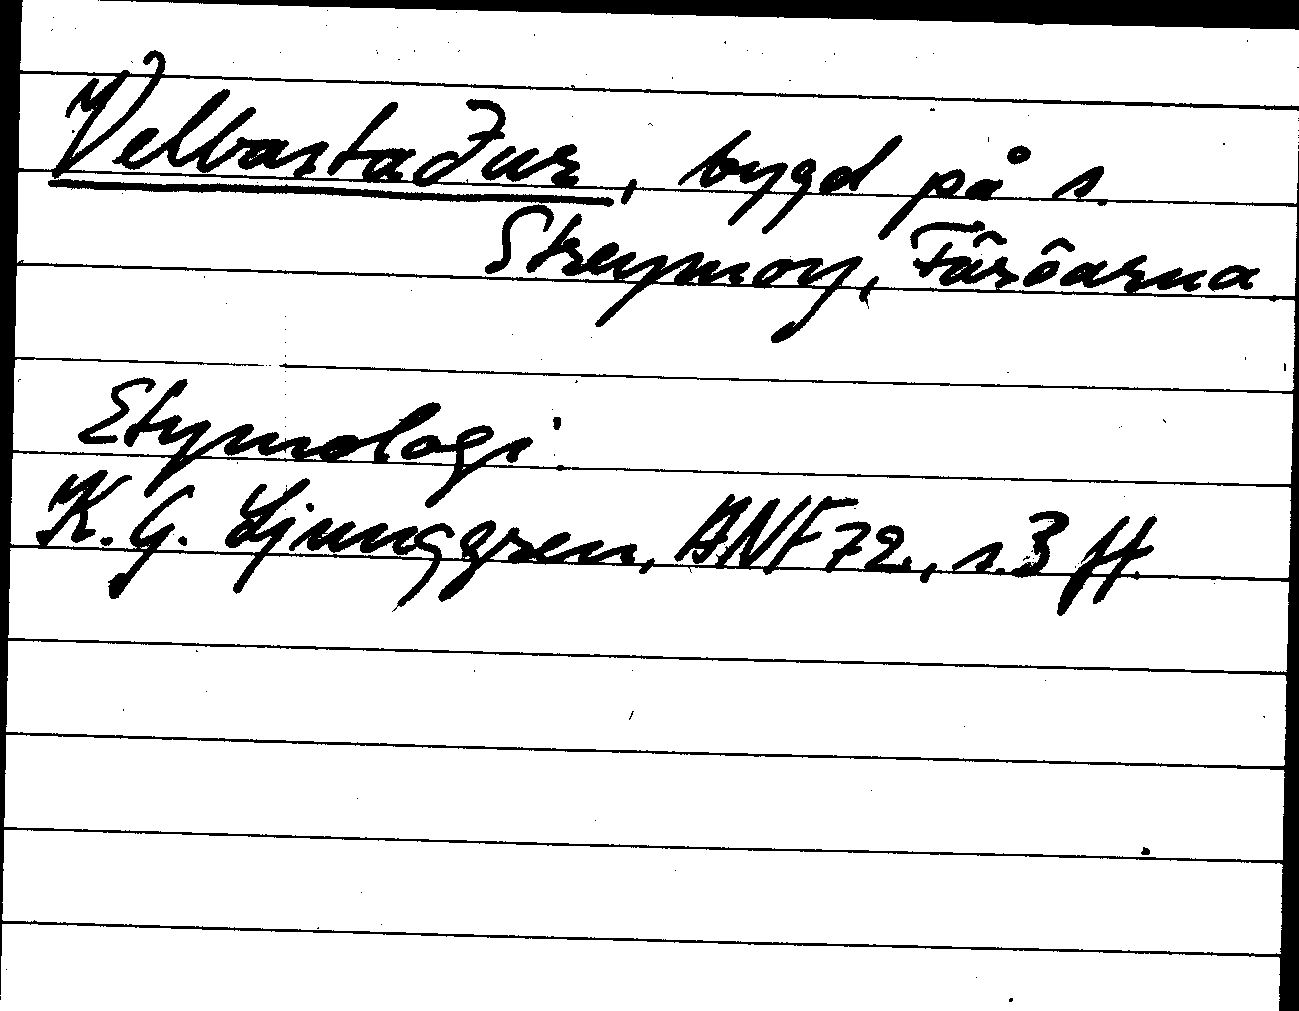 Velbastaður, bygd på s.
Streymoy, Färöarna
Etymologi:
K. G. Ljunggren, ANF 72., s. 3 ff.